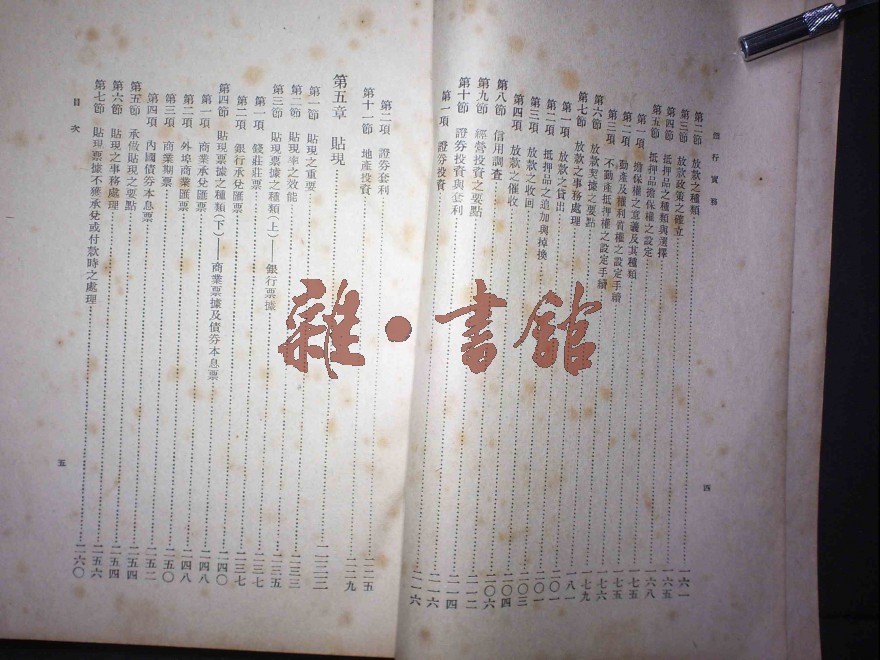 銀行實務
第二節 放款之種類 一六一
第三節 放款政策之確立 一六五
第四節 抵押品之種類與選擇 一六八
第五節 抵押品擔保權之設定 一七五
第一項 擔保權之意義及其種類 一七五
第二項 動產及權利質權之設定手續
第三項 不動產抵押權之設定手續 一七六
第六節 放款契據之要點 一七九
第七節 放款之事務處理 一八一
第一項 放款之貸出
第二項 抵押品之追加與掉換 二〇一
第三項 放款之收回 二〇三
第四項 放款之催收 二〇四
第八節 信用調查 二〇六
第九節 經營投資之要點 二一二
第十節 證券投資與套利 二一四
第一項 證券投資 二一六
四
第二項 證券套利 二二五
第十一節 地產投資 二二九
第五章 貼現
第一節 貼現之重要 二三二
第二節 貼現率之效能 二三三
第三節 貼現票據之種類(上)——銀行票據 二三五
第一項 錢莊莊票 二三七
第二項 銀行承兌匯票 二三七
第四節 貼現票據之種類(下)——商業票據及債券本息票 二四〇
第一項 商業承兌匯票 二四八
第二項 外埠商業匯票 二四八
第三項 商業期票 二五〇
第四項 內國債券本息票 二五二
第五節 承做貼現之要點 二五四
第六節 貼現之事務處理 二五四
第七節 貼現票據不獲承兌或付款時之處理 二五六
二六〇
目次
五
雜·書館